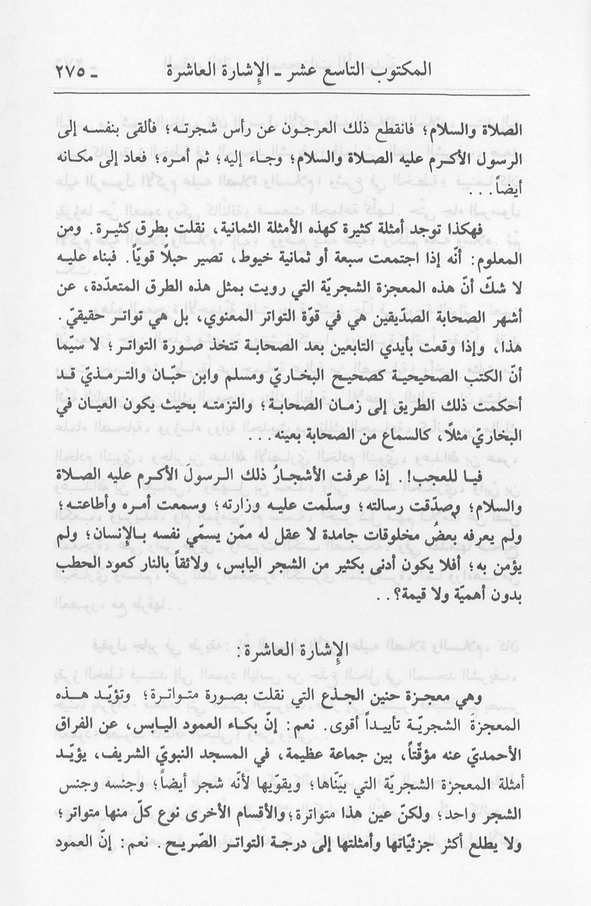 المكتوب التاسع عشر ـ الإشارة العاشرة ـ ٢٧٥
الصلاة والسلام؛ فانقطع ذلك العرجون عن رأس شجرته؛ فألقى بنفسه إلى
الرسول الأكرم عليه الصلاة والسلام؛ وجاء إليه؛ ثم أمره؛ فعاد إلى مكانه
أيضاً...
فهكذا توجد أمثلة كثيرة كهذه الأمثلة الثمانية، نقلت بطرق كثيرة. ومن
المعلوم: أنّه إذا اجتمعت سبعة أو ثمانية خيوط، تصير حبلًا قويّاً. فبناء عليه
لا شكّ أنّ هذه المعجزة الشجريّة التي رويت بمثل هذه الطرق المتعدّدة، عن
أشهر الصحابة الصدّيقين هي في قوّة التواتر المعنوي، بل هي تواتر حقيقيّ.
هذا، وإذا وقعت بأيدي التابعين بعد الصحابة تتخذ صورة التواتر؛ لا سيّما
أنّ الكتب الصحيحية كصحيح البخاريّ ومسلم وابن حبّان والترمذيّ قد
أحكمت ذلك الطريق إلى زمان الصحابة؛ والتزمته بحيث يكون العيان في
البخاريّ مثلًا، كالسماع من الصحابة بعينه...
فيا للعجب!. إذا عرفت الأشجارُ ذلك الرسولَ الأكرم عليه الصلاة
والسلام؛ وصدّقت رسالته؛ وسلّمت عليه وزارته؛ وسمعت أمره وأطاعته؛
ولم يعرفه بعضُ مخلوقات جامدة لا عقل له ممّن يسمّي نفسه بالإنسان؛ ولم
يؤمن به؛ أفلا يكون أدنى بكثير من الشجر اليابس، ولائقاً بالنار كعود الحطب
بدون أهميّة ولا قيمة؟..
الإشارة العاشرة:
وهي معجزة حنين الجذع التي نقلت بصورة متواترة؛ وتؤيّد هذه
المعجزةَ الشجريّة تأييداً أقوى. نعم: إنّ بكاء العمود اليابس، عن الفراق
الأحمديّ عنه مؤقّتاً، بين جماعة عظيمة، في المسجد النبويّ الشريف، يؤيّد
أمثلة المعجزة الشجريّة التي بيّناها؛ ويقوّيها لأنّه شجر أيضاً؛ وجنسه وجنس
الشجر واحد؛ ولكنّ عين هذا متواترة؛ والأقسام الأخرى نوع كلّ منها متواتر؛
ولا يطلع أكثر جزئيّاتها وأمثلتها إلى درجة التواتر الصّريح. نعم: إنّ العمود